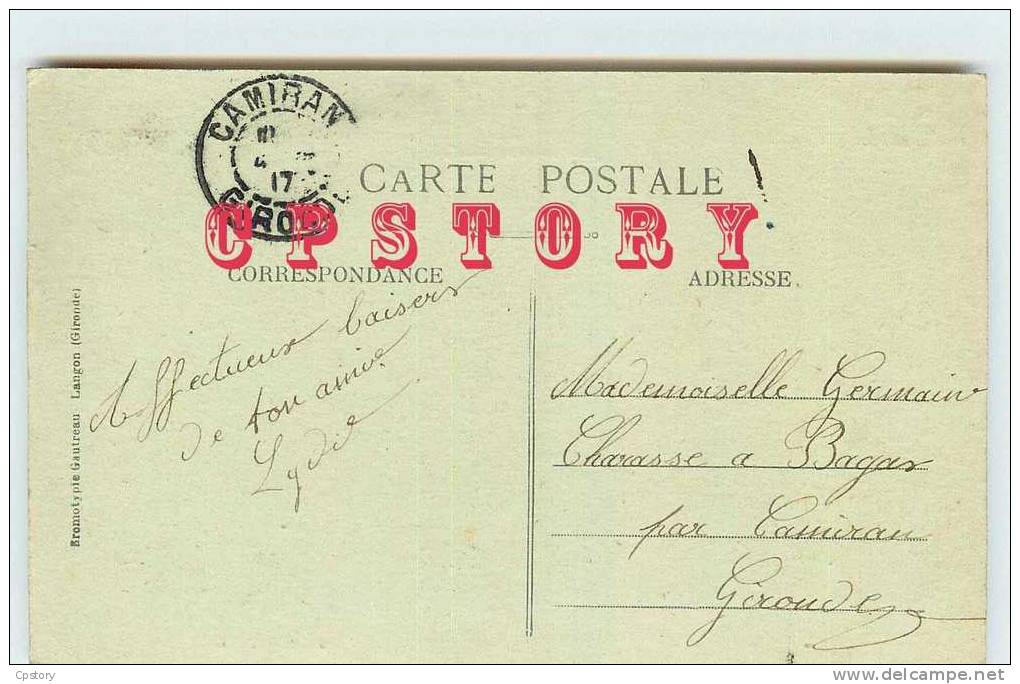 CAMIRAN
17
CARTE POSTALE
CPSTORY
CORRESPONDANCE
ADRESSE
Affectueux baisers
de ton amie
Lydie
Mademoiselle Germaine
Charasse a Bagas
par Camiran
Gironde
Bromotypie Gautreau Langon (Gironde)
Cpstory
www.delcampe.net